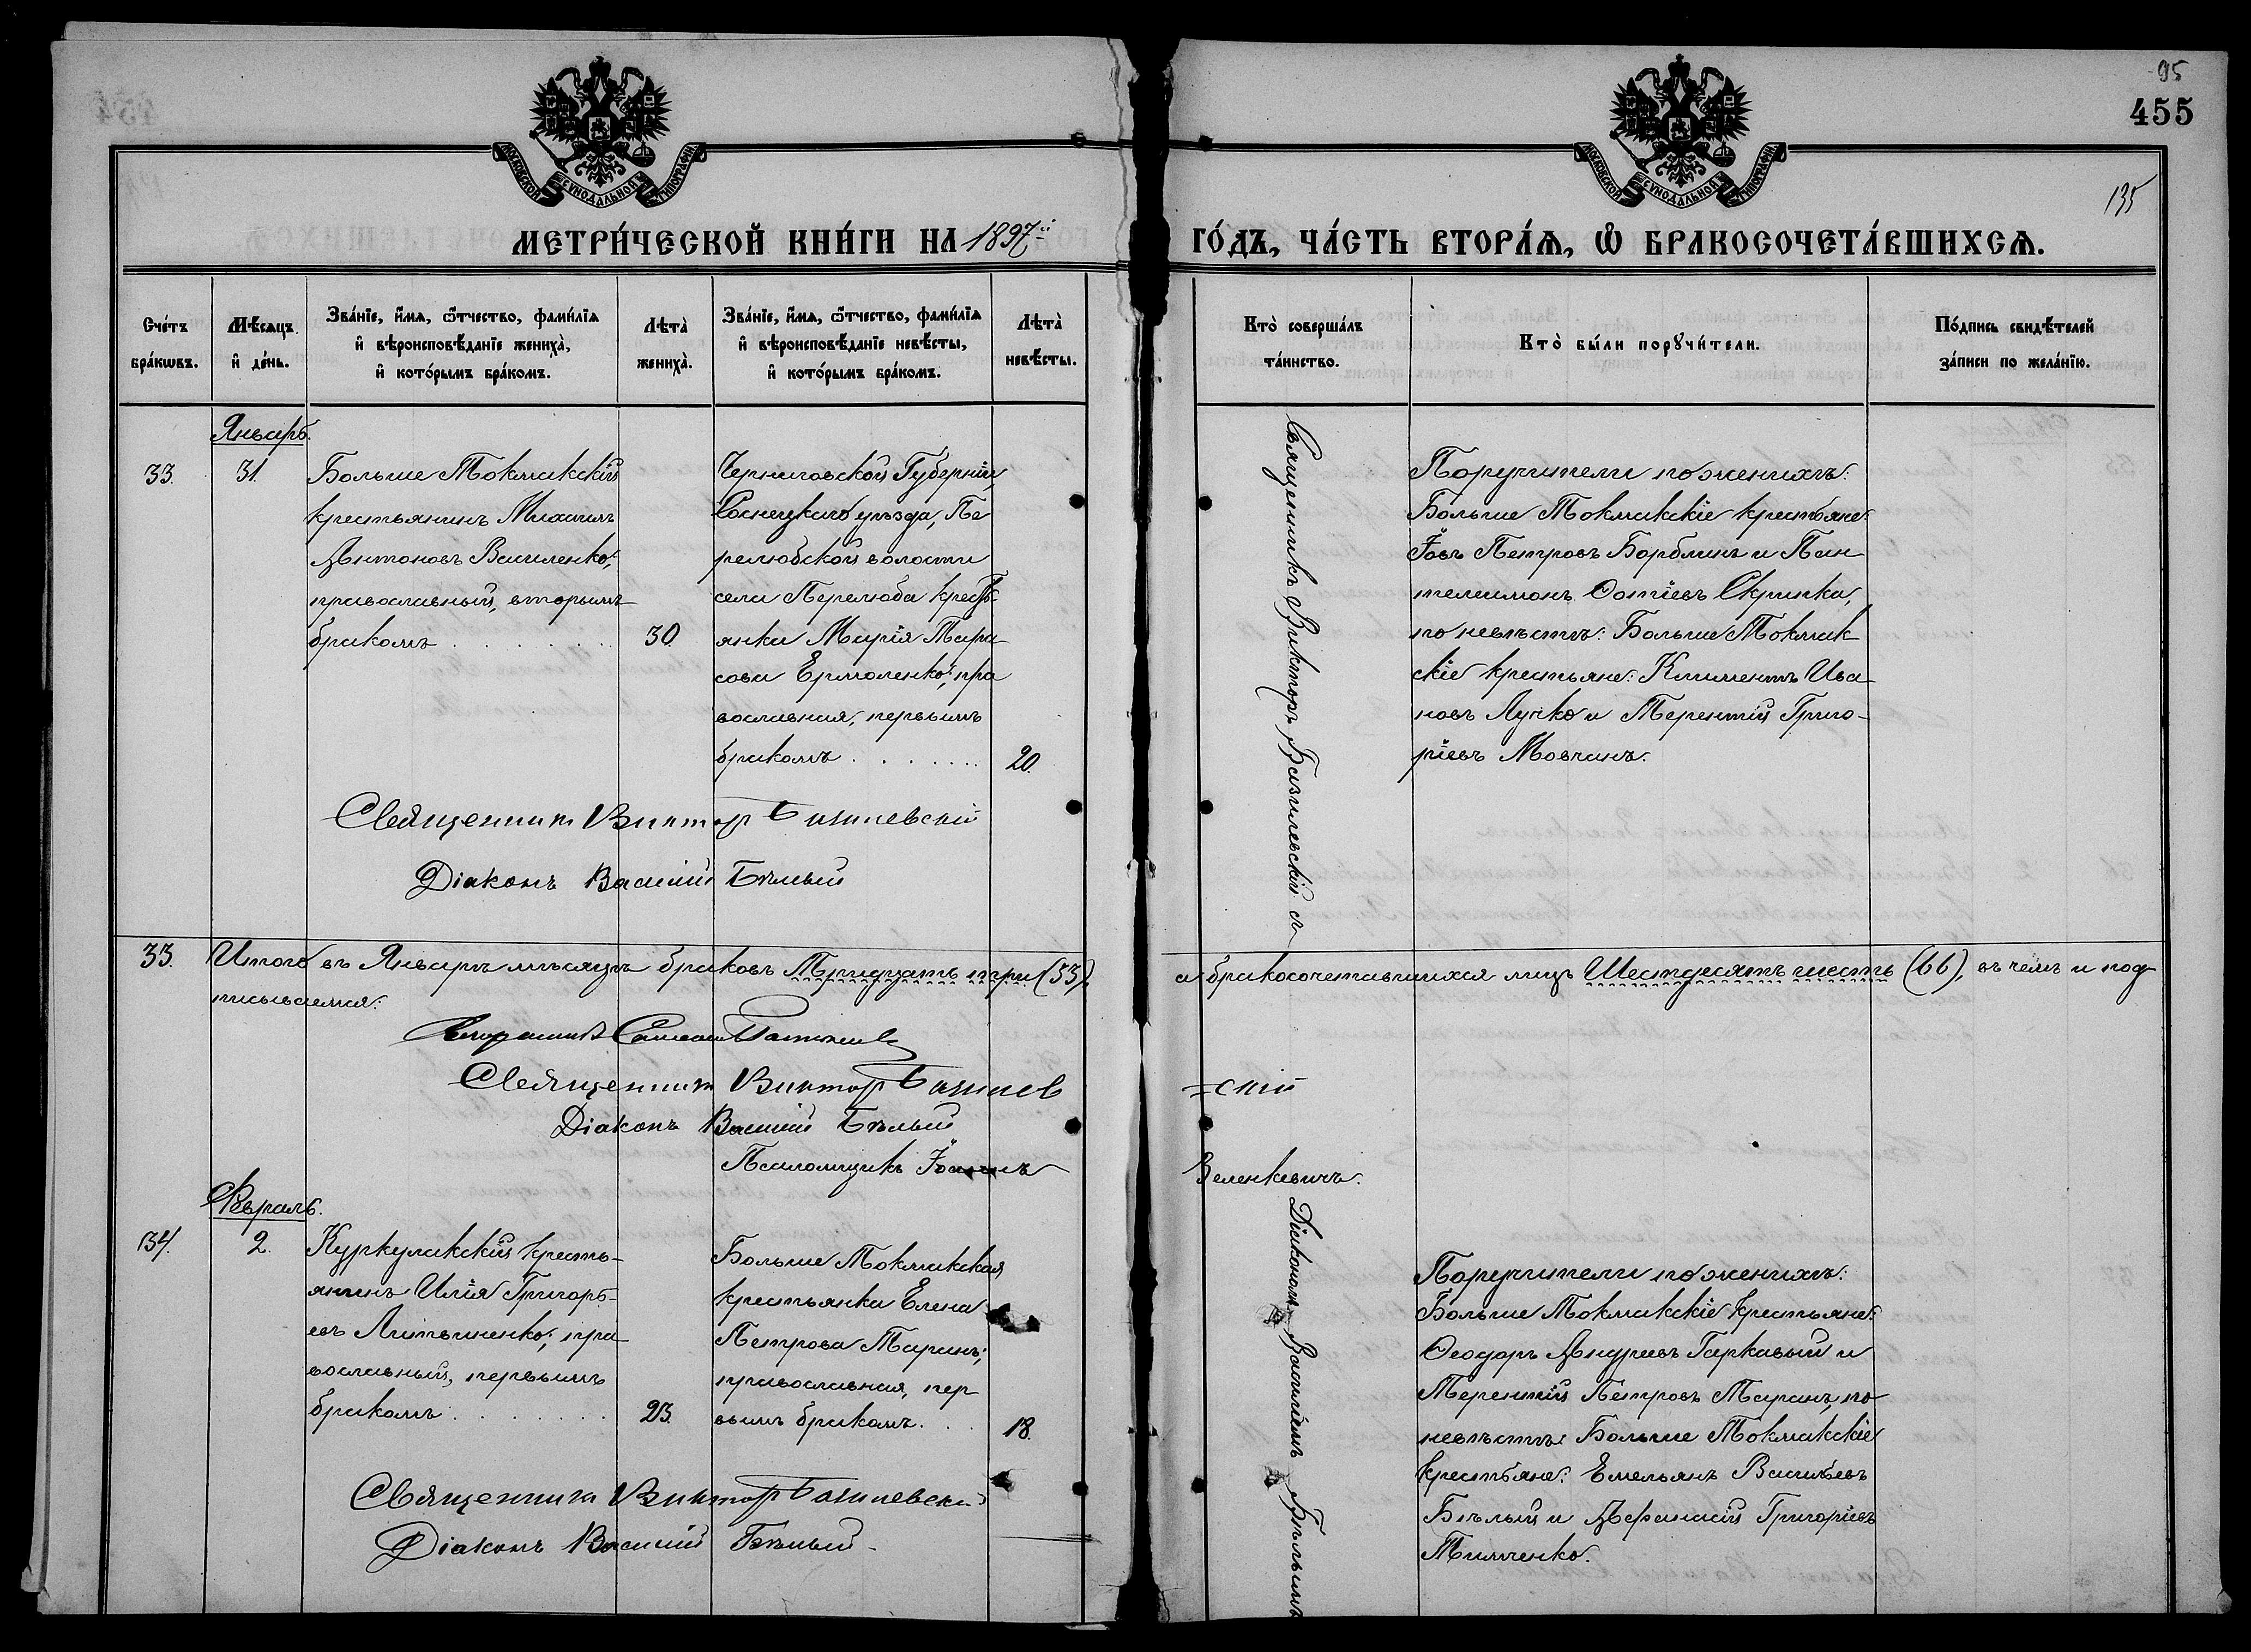 95
455
135
МОСКОВСКОЙ СѴНОДАЛЬНОЙ ТИПОГРАФІИ
МОСКОВСКОЙ СѴНОДАЛЬНОЙ ТИПОГРАФІИ
МЕТРИ́ЧЕСКОЙ КНИ́ГИ НА 1897й ГО́ДЪ, ЧА́СТЬ ВТОРА́Ѧ, Ѽ БРАКОСОЧЕТА́ВШИХСѦ.
Сче́тъ
бра́кѡвъ.
Мѣ́сяцъ
и҆ де́нь.
Зва́нїе, и҆́мѧ, ѻ҆́тчество, фами́лїѧ
и҆ вѣроисповѣ́данїе жениха̀,
и҆ кото́рымъ бра́комъ.
Лѣта̀
жениха̀.
Зва́нїе, и҆́мѧ, ѻ҆́тчество, фами́лїѧ
и҆ вѣроисповѣ́данїе невѣ́сты,
и҆ кото́рымъ бра́комъ.
Лѣта̀
невѣ́сты.
Кто̀ соверша́лъ
та́инство.
Кто̀ бы́ли порꙋчи́тели.
По́дпись свидѣ́телей
за́писи по жела́нїю.
Январь.
33.
31.
Больше Токмакскій
крестьянинъ Михаилъ
Антоновъ Василенко;
православный, вторымъ
бракомъ . . . . . . .
30.
Черниговской Губерніи,
Сосницкаго уѣзда, Пе
релюбской волости
села Перелюба крестъ-
янка Марія Тара
сова Ермоленко; пра
вославная, первымъ
бракомъ . . . . . . .
20.
Священникъ Викторъ Базилевскій съ
Поручители по женихѣ:
Больше Токмакскіе крестьяне:
Іовъ Петровъ Борблинъ и Пан
телеимонъ Фотіевъ Скрипка,
по невѣстѣ: Больше Токмак
скіе крестьяне: Климентъ Ива
новъ Лучко и Терентій Григо-
ріевъ Мовчанъ.
Священник Виктор Базилевский
Діаконъ Василий Бѣлый
33.
Итого въ Январѣ мѣсяцѣ браковъ Тридцать три (33), а бракосочетавшихся лицъ Шестдесятъ шесть (66), въ чемъ и под
писываемся:
Священник Виктор Базилев=ский
Діаконъ Василий Бѣлый
Псаломщикъ Іоаннъ Зеленкевичъ.
Февраль.
34.
2.
Куркулакскій кресть-
янинъ Илія Григорь-
евъ Литвиненко; пра
вославный, первымъ
бракомъ . . . . . . .
23.
Больше Токмакская
крестьянка Елена
Петрова Таранъ;
православная, пер
вымъ бракомъ . . .
18.
Діакономъ Василіемъ Бѣлымъ
Поручители по женихѣ:
Больше Токмакскіе крестьяне:
Феодоръ Андреевъ Гаркавый и
Терентій Петровъ Таранъ, по
невѣстѣ: Больше Токмакскіе
крестьяне: Емельянъ Васильевъ
Бѣлый и Афанасій Григоріевъ
Тимченко.
Священник Виктор Базилевский
Діаконъ Василий Бѣлый